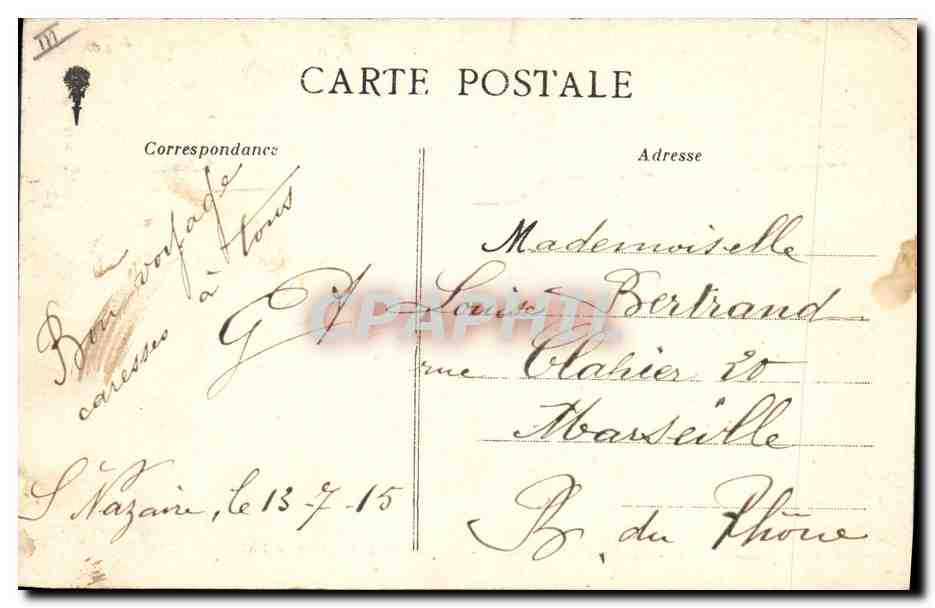 III
CARTE POSTALE
Correspondance
Adresse
Bon voyage
caresses à tous
G
St Nazaire, le 13-7-15
Mademoiselle
Louise Bertrand
rue Clahier 20
Marseille
B. du Rhône
CPAPHIL